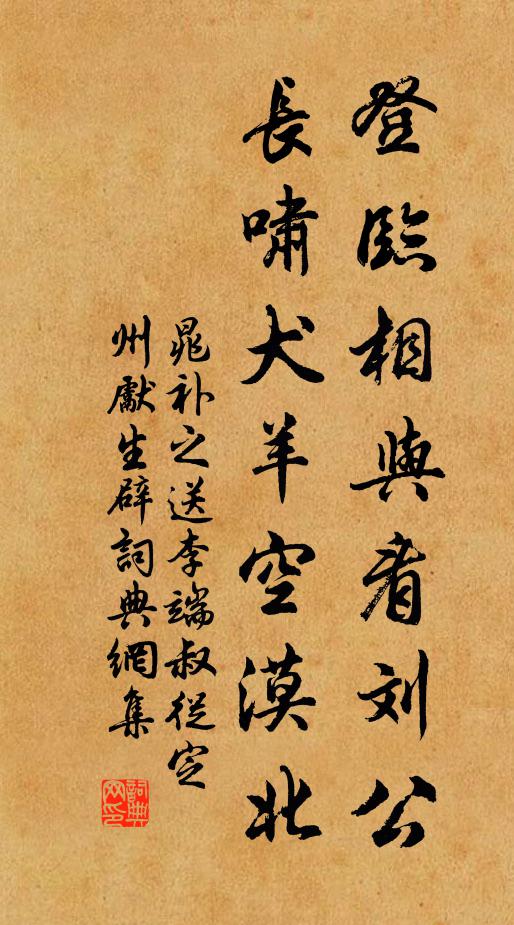 登臨相與看刘公
長嘯犬羊空漠北
晁补之送李端叔從定
州獻生辟詞典網集
詞典网印